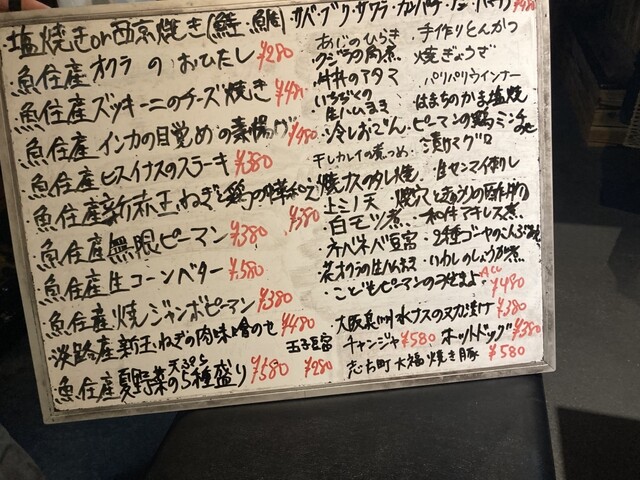 塩焼きor西京焼き(鮭・鯛)・サバ・ブリ・サワラ・カンパチ
魚住産オクラのおひたし ¥280
魚住産ズッキーニのチーズ焼き ¥480
魚住産インカの目覚めの素揚げ ¥480
魚住産ピスイナスのステーキ ¥380
魚住産新赤玉ねぎと鶏の中華和え ¥380
魚住産無限ピーマン ¥380
魚住産生コーンバター ¥580
魚住産焼ジャンボピーマン ¥380
淡路産新玉ねぎの肉味噌のせ ¥480
魚住産夏野菜の天ぷら5種盛り ¥580
玉子豆富 ¥280
・あじのひらき ・手作りとんかつ
・クジラの角煮 ・焼ぎょうざ
・パリパリウインナー
・いちぢくの生ハムまき ・はまちのかま塩焼
・冷しおでん ・ピーマンの鶏ミンチ
・干しカレイの煮つめ ・漬けマグロ
・焼ナスのタレ焼 ・生センマイ刺し
・上ミノ天 ・焼穴ときゅうりの酢の物
・白モツ煮 ・和牛アキレス煮
・2種ゴーヤのこんぶ
・菜オクラの生ハムまき ・いわしのしょうが煮
・こどもピーマンのつせまよ ALL ¥480
大阪泉州水ナスのヌカ漬け ¥380
チャンジャ ¥580 ホットドッグ ¥380
志古町大福焼き豚 ¥580